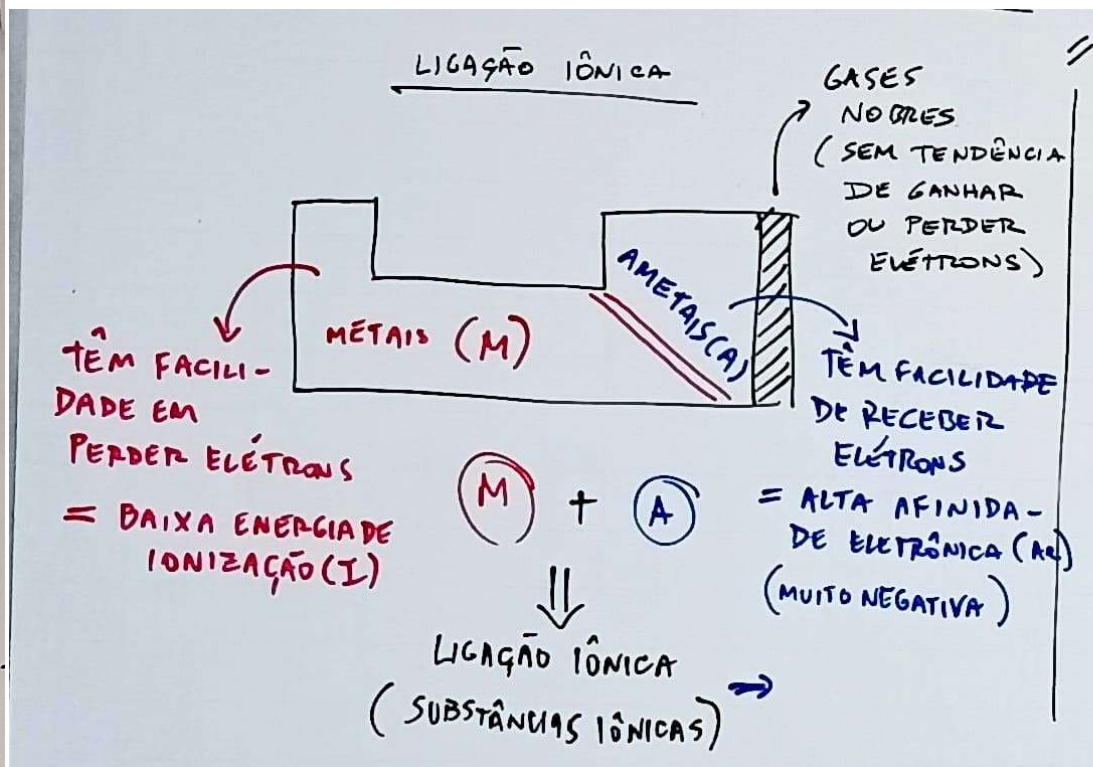 LIGAÇÃO IÔNICA
GASES
NOBRES
(SEM TENDÊNCIA
DE GANHAR
OU PERDER
ELÉTRONS)
METAIS (M)
AMETAIS (A)
TÊM FACILI-
DADE EM
PERDER ELÉTRONS
= BAIXA ENERGIA DE
IONIZAÇÃO (I)
M + A
TÊM FACILIDADE
DE RECEBER
ELÉTRONS
= ALTA AFINIDA-
DE ELETRÔNICA (Ae)
(MUITO NEGATIVA)
LIGAÇÃO IÔNICA
(SUBSTÂNCIAS IÔNICAS) →